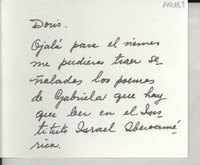 Doris.
Ojalá para el viernes
me pudieras traer se-
ñalados los poemas
de Gabriela que hay
que leer en el Ins
tituto Israel Iberoamé
rica.